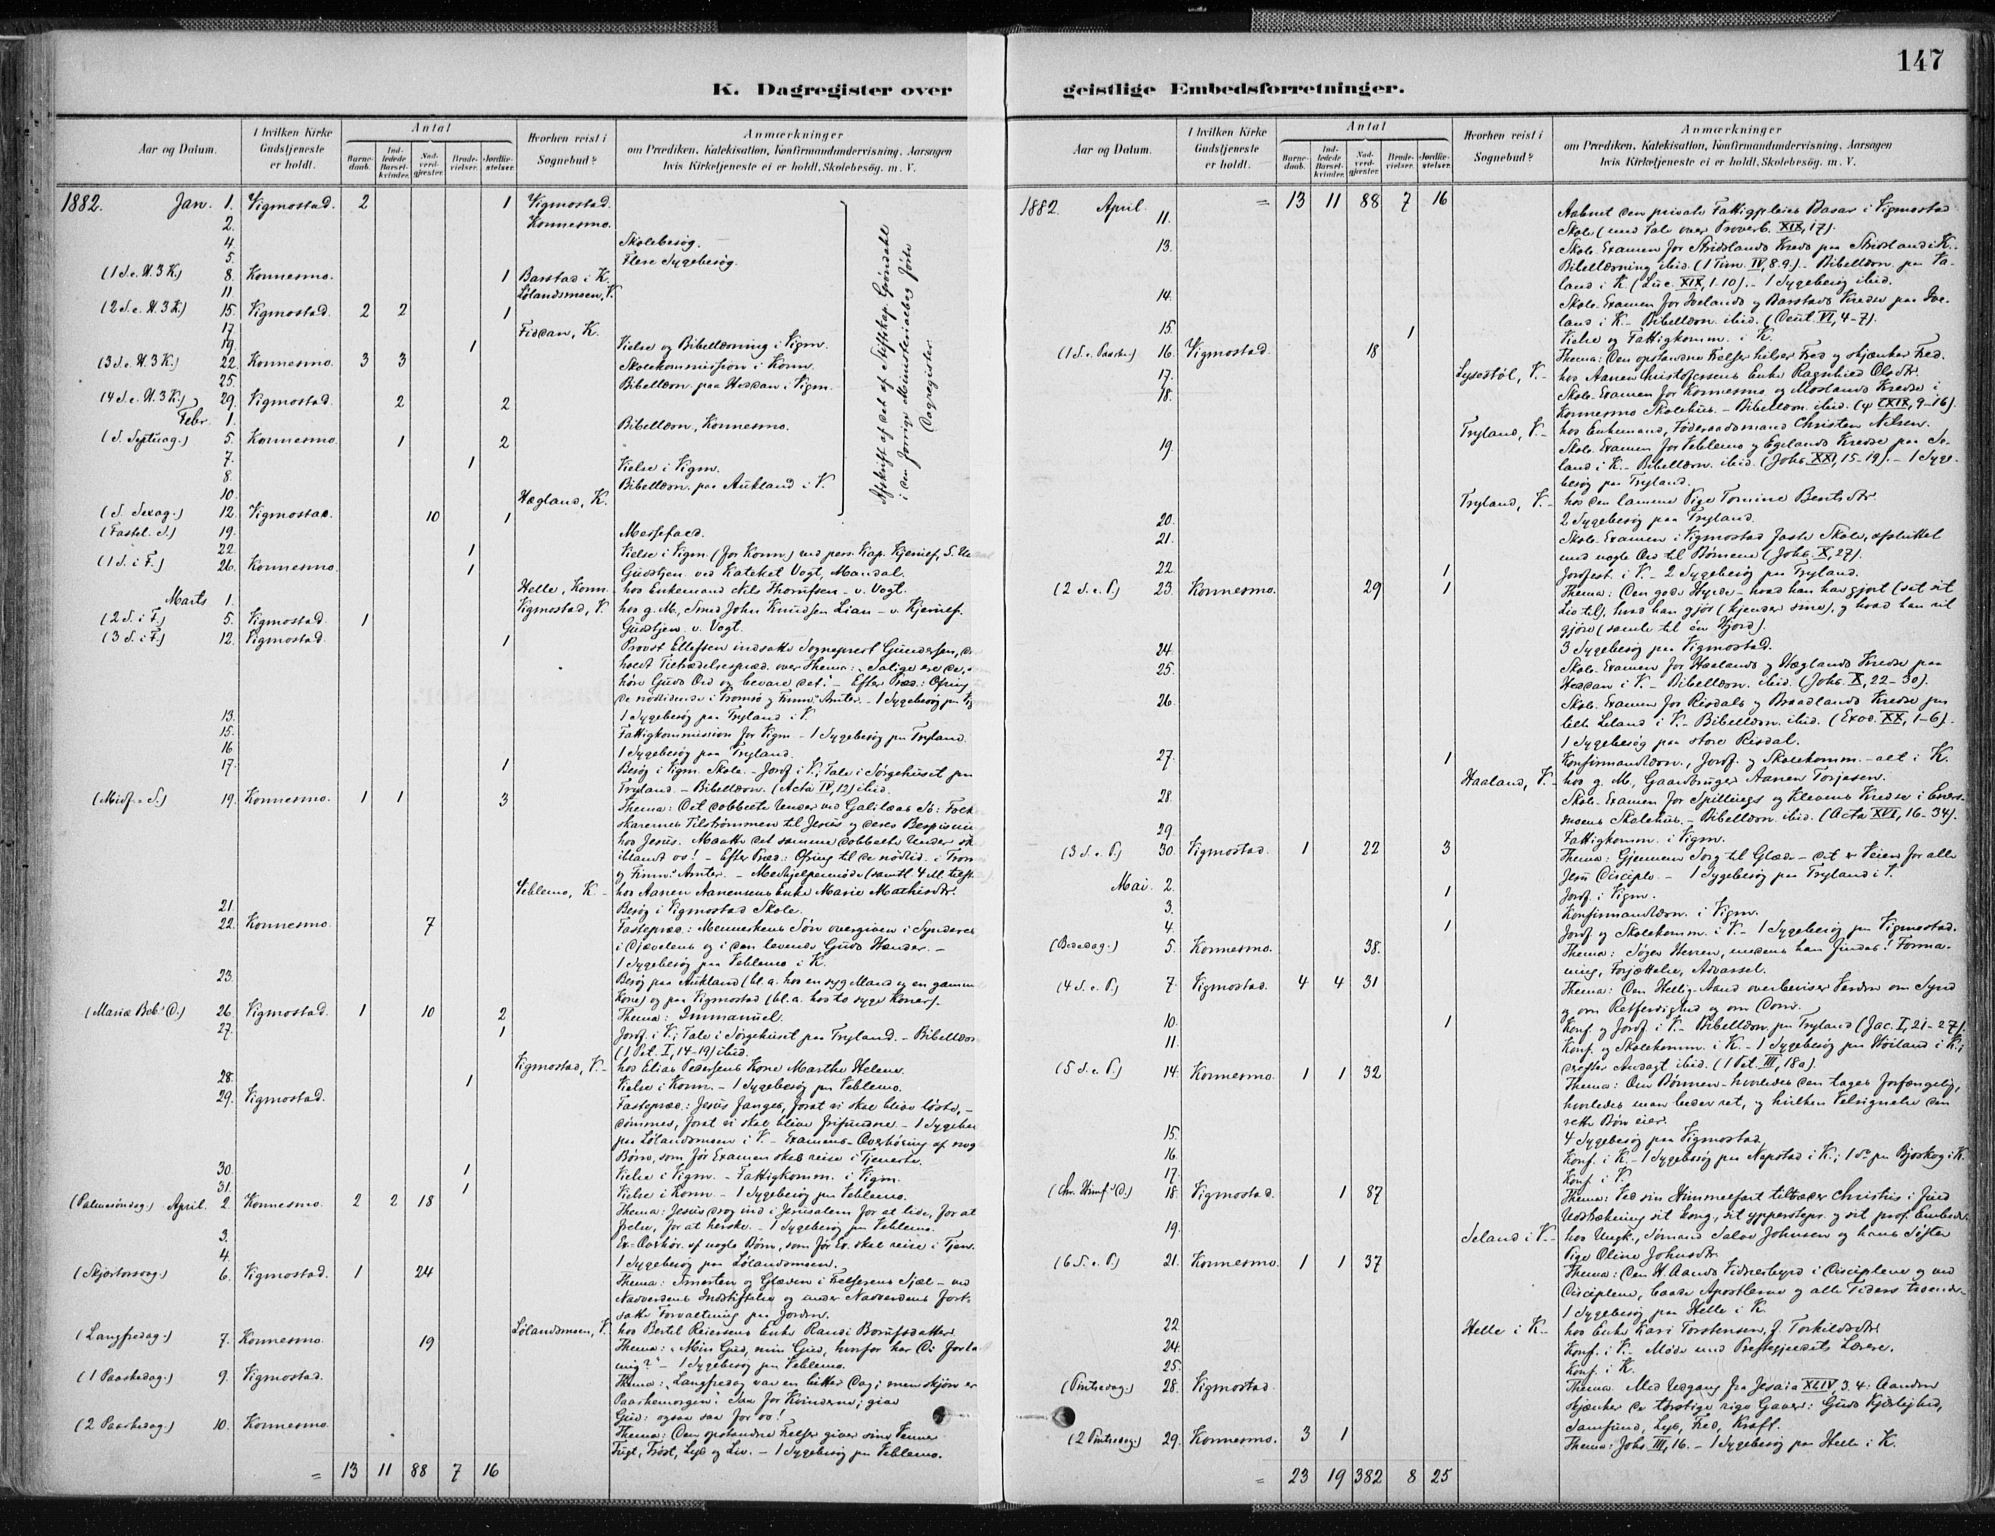 147
K. Dagregister over geistlige Embedsforretninger.
Aar og Datum.
I hvilken Kirke Gudstjeneste er holdt.
Antal
Barne-daab.
Ind-ledede Barsel-kvinder.
Nad-verd-gjæster.
Brude-vielser.
Jordfæ-stelser.
Hvorhen reist i Sognebud?
Anmærkninger
om Prædiken, Katekisation, Konfirmandundervisning, Aarsagen
hvis Kirketjeneste ei er holdt, Skolebesøg. m. V.
1882. Jan. 1. Vigmostad. 2 1 Vigmostad.
2. Konnesmo.
4. Skolebesøg.
5. Flere Sygebesøg.
(1 S. e. H. 3 K.) 8. Konnesmo. 1 Barstad i K.
11. Lølandsmoen, V.
(2 S. e. H. 3 K.) 15. Vigmostad. 2 2 1
17. Fiddan, K.
19. 1 Vielse og Bibellæsning i Vigm.
(3 S. e. H. 3 K.) 22. Konnesmo. 3 3 Skolekommission i Konn.
25. Bibellæsn. paa Heddan i Vigm.
(4 S. e. H. 3 K.) 29. Vigmostad. 2 2
Febr. 1. Bibellæsn, Konnesmo.
(S. Septuag.) 5. Konnesmo. 1 2
7. 1 Vielse i Vigm.
8. Bibellæsn. paa Aukland i V.
10. Hægland, K.
(S. Sexag.) 12. Vigmostad. 10 1
(Fastel. S.) 19. Messefald.
22. 1 Vielse i Vigm. (for Konn.) ved pers. Kap. Kjerulf, S. Un
(1 S. i F.) 26. Konnesmo. 1 Gudstjen. ved Kateket Vogt, Mandal.
Helle, Konn. hos Enkemand Nils Thorufsen - v. Vogt.
Marts 1. Vigmostad, V. hos g. M. Smed John Knudsen Lian - v. Kjerulf.
(2 S. i F.) 5. Vigmostad. 1 Gudstjen. v. Vogt.
(3 S. i F.) 12. Vigmostad. 1 Provst Ellefsen indsatte Sogneprest Gundersen, der
holdt Tiltrædelsespræd. over Thema: "Salige ere de,
høre Guds Ord og bevare det." - Efter Præd.: Ofring
de nødlidende i Tromsø og Finm. Amter. - 1 Sygebesøg paa
13. 1 Sygebesøg paa Tryland i V.
15. Fattigkommission for Vigm - 1 Sygebesøg paa Tryland
16. 1 Sygebesøg paa Tryland.
17. 1 Besøg i Vigm. Skole. - Jordf. i V.; Tale i Sørgehuset paa
Tryland. - Bibellæsn. (Acta IV, 12) ibid.
(Midf. S.) 19. Konnesmo. 1 1 3 Thema: Det dobbelte Under ved Galilæas Sø: Folk
skarernes Tilstrømmen til Jesus og deres Bespisning
hos Jesus. Maatte det samme dobbelte Under sk
iblandt os! - Efter Præd.: Ofring til de nødlid. i Trom
og Finm. Amter. - Medhjelpermøde (samtl. 4 M. tilst
Veblemo, K. - hos Aanen Aanensens Enke Marie Mathisdtr.
21. Besøg i Vigmostad Skole.
22. Konnesmo. 7 Fastepræd.: Menneskens Søn overgiven i Synderes
i Djævelens og i den levende Guds Hænder. -
1 Sygebesøg paa Veblemo i K.
23. Besøg paa Aukland (bl. a. hos en syg Mand og en gammel
Kone) og paa Vigmostad (bl. a. hos to syge Koner).
(Mariæ Beb. D.) 26. Vigmostad. 1 10 2 Thema: Immanuel.
27. 1 Jordf. i V.; Tale i Sørgehuset paa Tryland. - Bibellæsn
(1 Pet. I, 14-19) ibid.
Vigmostad, V. - hos Elias Pedersens Kone Marthe Helene.
28. 1 Vielse i Konn. - 1 Sygebesøg paa Veblemo.
29. Vigmostad. Fastepræd.: Jesus fanges, forat vi skal blive løste, -
dømmes, forat vi skal blive frifundne. - 1 Sygebes
paa Lølandsmoen i V. - Examens-Overhøring af nog
Børn, som før Examen skal reise i Tjeneste.
30. 1 Vielse i Vigm. - Fattigkomm. i Vigm.
31. 1 Vielse i Konn. - 1 Sygebesøg paa Veblemo.
(Palmesøndag.) April. 2. Konnesmo. 2 2 18 Thema: Jesus drog ind i Jerusalem for at lide, for at
frelse, for at herske. - 1 Sygebesøg paa Veblemo.
3. Ex-Overhør. af nogle Børn, som før Ex. skal reise i Tjen.
4. 1 Sygebesøg paa Lølandsmoen.
(Skjærtorsdag.) 6. Vigmostad. 1 24 Thema: Smerten og Glæden i Frelserens Sjæl - ved
Nadverdens Indstiftelse og under Nadverdens fort-
satte Forvaltning paa Jorden.
Lølandsmoen, V. hos Bertil Reiersens Enke Randi Borufsdatter.
(Langfredag.) 7. Konnesmo. 19 Thema: "Min Gud, min Gud, hvorfor har Du forla
mig?" - 1 Sygebesøg paa Veblemo.
(1 Paaskedag.) 9. Vigmostad. Thema: "Langfredag var en bitter Dag; men skjøn er
Paaskemorgen". Saa for Kvinderne; giv
Gud: ogsaa saa for os!
(2 Paaskedag.) 10. Konnesmo. Thema: Den opstandne Frelser giver sine Venner
Frygt, Trøst, Lys og Liv. - 1 Sygebesøg paa Veblemo.
= 13 11 88 7 16
Afskrift af det af Stiftskap. Grøndahl
i den forrige Ministerialbog førte
Dagregister.
Aar og Datum.
I hvilken Kirke Gudstjeneste er holdt.
Antal
Barne-daab.
Ind-ledede Barsel-kvinder.
Nad-verd-gjæster.
Brude-vielser.
Jordfæ-stelser.
Hvorhen reist i Sognebud?
Anmærkninger
om Prædiken, Katekisation, Konfirmandundervisning, Aarsagen
hvis Kirketjeneste ei er holdt, Skolebesøg. m. V.
1882. April. = 13 11 88 7 16
11. Aabnet den private Fattigpleies Basar i Vigmostad
Skole (med Tale over Proverb. XIX, 17).
13. Skole-Examen for Stridslands Kreds paa Stridsland i K.
Bibellæsning ibid. (1 Tim. IV, 8.9). - Bibellæsn. paa
land i K. (Luc. XIX, 1-10). - 1 Sygebesøg ibid.
14. Skole-Examen for Ivelands og Barstads Kredse paa Ive-
land i K. - Bibellæsn. ibid. (Deut. VI, 4-7).
15. 1 Vielse og Fattigkomm. i K.
(1 S. e. Paaske.) 16. Vigmostad. 18 Thema: Den opstandne Frelser hilser Fred og skjænker Fred.
17. Lysestøl, V. - hos Aanen Christofersens Enke Ragnhild Olsdtr.
18. Skole-Examen for Konnesmo og Moslands Kredse i
Konnesmo Skolehus. - Bibellæsn. ibid. (ψ CXIX, 9-16).
Tryland, V. - hos Enkemand, Føderaadsmand Christen Nilsen.
19. Skole-Examen for Veblemo og Egelands Kredse paa
land i K. - Bibellæsn. ibid. (Johs. XXI, 15-19). - 1 Syge-
besøg paa Tryland.
Tryland, V. - hos den lamme Pige Tomine Berntsdtr
20. 2 Sygebesøg paa Tryland.
21. Skole-Examen i Vigmostad faste Skole, afsluttet
med nogle Ord til Børnene (Johs. X, 27).
22. 1 Jordfest. i V. - 2 Sygebesøg paa Tryland.
(2 S. e. P.) 23. Konnesmo. 29 1 Thema: Den gode Hyrde - hvad han har gjort (sat sit
Liv til), hvad han gjør (kjender sine), og hvad han vil
gjøre (samle til én Hjord).
24. 3 Sygebesøg paa Vigmostad.
25. Skole-Examen for Haalands og Hæglands Kredse paa
Heddan i V. - Bibellæsn. ibid. (Johs. X, 22-30).
26. Skole-Examen for Risdals og Braadlands Kredse paa
lille Leland i V. - Bibellæsn. ibid. (Exod. XX, 1-6).
1 Sygebesøg paa store Risdal.
27. 1 Konfirmandlæsn., Jordf. og Skolekomm. - alt i K.
Haaland, V. - hos g. M., Gaardbruger Aanen Torjesen.
28. Skole-Examen for Spillings og Klevens Kredse i
moens Skolehus. - Bibellæsn. ibid. (Acta XVI, 16-34).
29. Fattigkomm. i Vigm.
(3 S. e. P.) 30. Vigmostad. 1 22 3 Thema: Gjennem Sorg til Glæde - det er Veien for alle
Jesu Disciple. - 1 Sygebesøg paa Tryland i V.
Mai. 2. 1 Jordf. i Vigm.
3. Konfirmandlæsn. i Vigm.
4. 1 Jordf. og Skolekomm. i V. - 1 Sygebesøg paa Vigmostad.
(Bededag.) 5. Konnesmo. 38. Thema: Søger Herren, medens han findes! Forma-
ning, Forjættelse, Advarsel.
(4 S. e. P.) 7. Vigmostad. 4 4 31 Thema: Den Hellig-Aand overbeviser Verden om Synd
og om Retfærdighed og om Dom.
10. 1 Konf. og Jordf. i V. - Bibellæsn. paa Tryland (Jac. I, 21-27).
11. Konf. og Skolekomm. i K. - 1 Sygebesøg paa Høiland i K.;
derefter Andagt ibid. (1 Pet. III, 18a).
(5 S. e. P.) 14. Konnesmo. 1 1 32 Thema: Om Bønnen - hvorledes den tages forfængelig,
hvorledes man beder ret, og hvilken Velsignelse den
rette Bøn eier.
15. 4 Sygebesøg paa Vigmostad.
16. Konf. i K. - 1 Sygebesøg paa Nøpstad i K.; 1 do paa Bjørkog i K.
17. Konf. i V.
(Chr. Himf. D.) 18. Vigmostad. 1 87 Thema: Ved sin Himmelfart tiltræder Christus i fuld
Udstrækning sit kong., sit ypperstepr. og sit prof. Embede.
19. Seland i V. - hos Ungk., Sømand Salve Johnsen og hans Søster
Pige Oline Johnsdtr.
(6 S. e. P.) 21. Konnesmo. 1 1 37 Thema: Den H. Aands Vidnesbyrd i Disciplene og ved
Disciplene, baade Apostlerne og alle Tiders troende.
1 Sygebesøg paa Helle i K.
22. Helle i K. - hos Enke Kari Torstensen, f. Torkildsdtr.
24. Konf. i V. - Møde med Prestegjeldets Lærere.
25. Konf. i K.
(Pintsedag.) 28. Vigmostad. Thema. Med Udgang fra Jesaia XLIV, 3. 4: Aanden
skjænker de tørstige rige Gaver: Guds Kjærlighed,
Samfund, Lys, Fred, Kraft.
(2 Pintsedag.) 29. Konnesmo. 3 1 Thema: Johs. III, 16. - 1 Sygebesøg paa Helle i K.
= 23 19 382 8 25